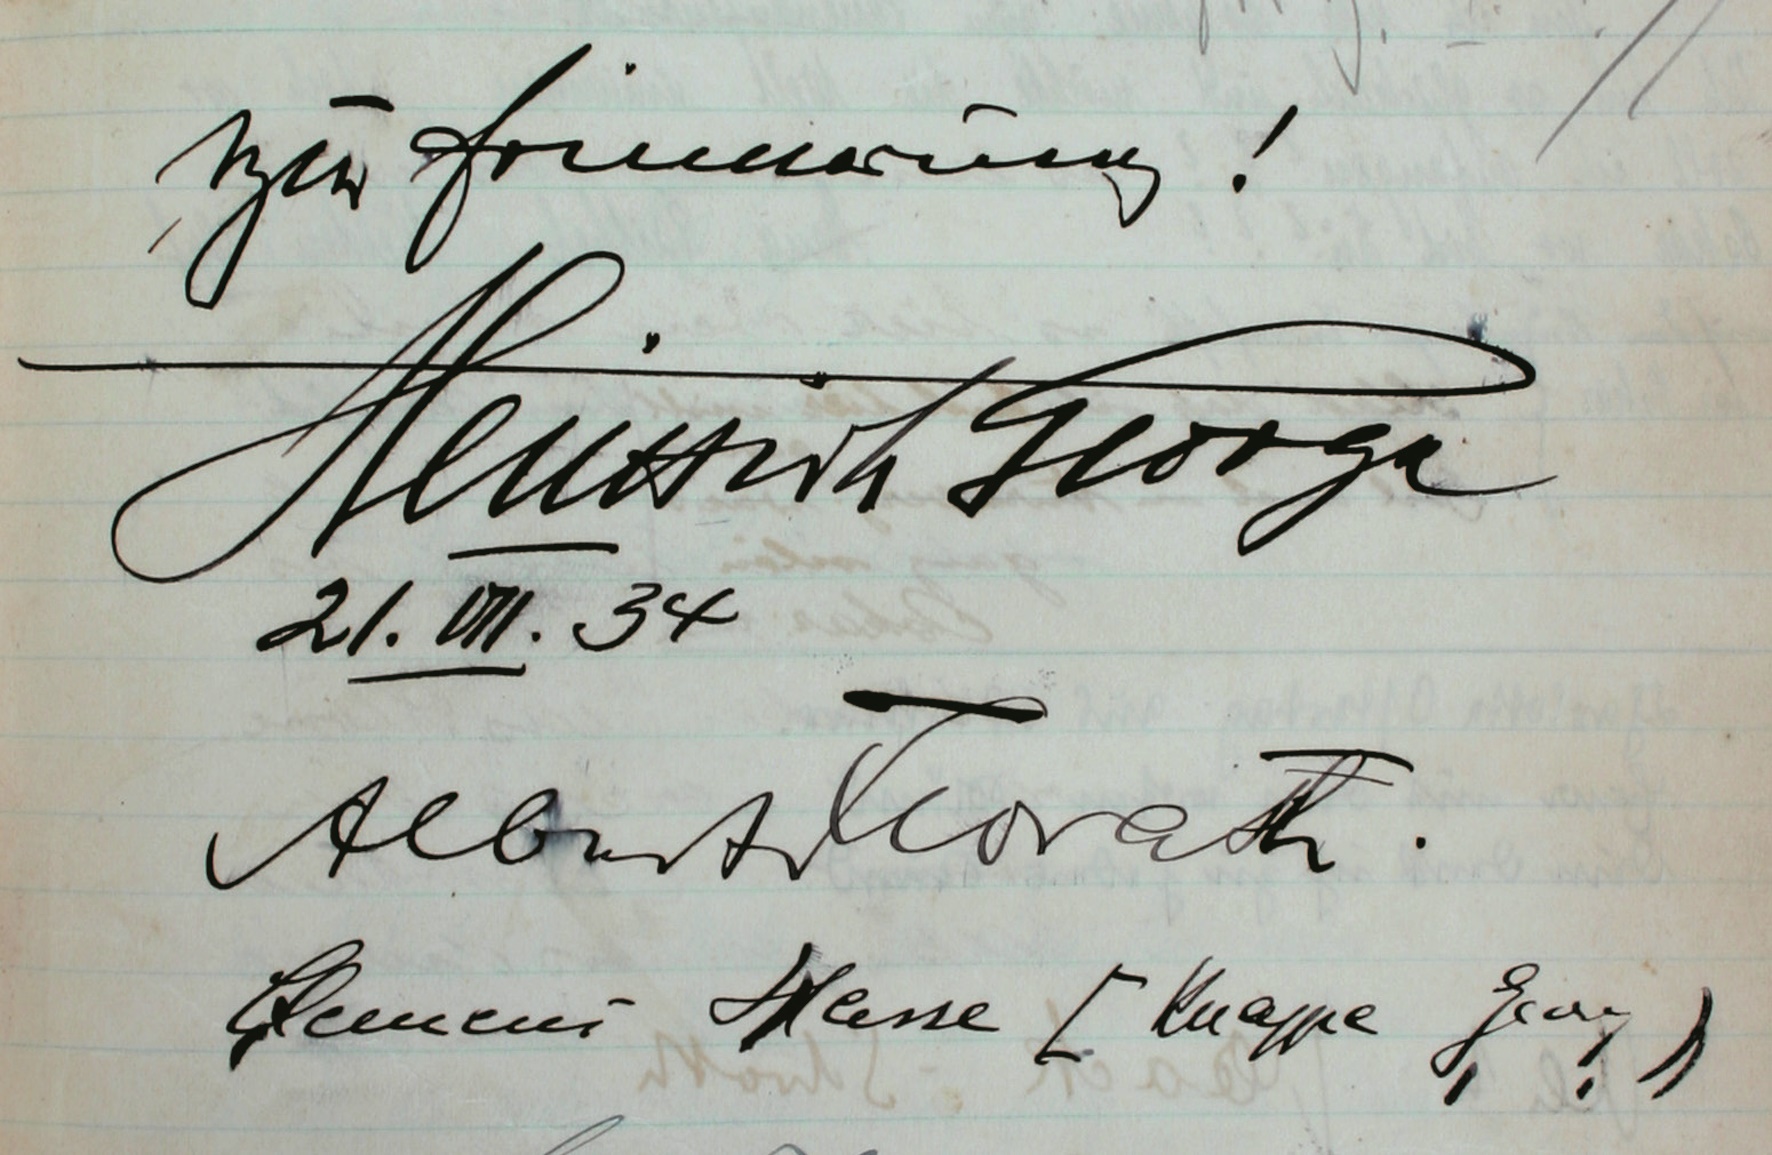 zur Erinnerung!
Heinrich George
21. VII. 34
Albert Florath.
Clemens Hasse [Knappe Georg)